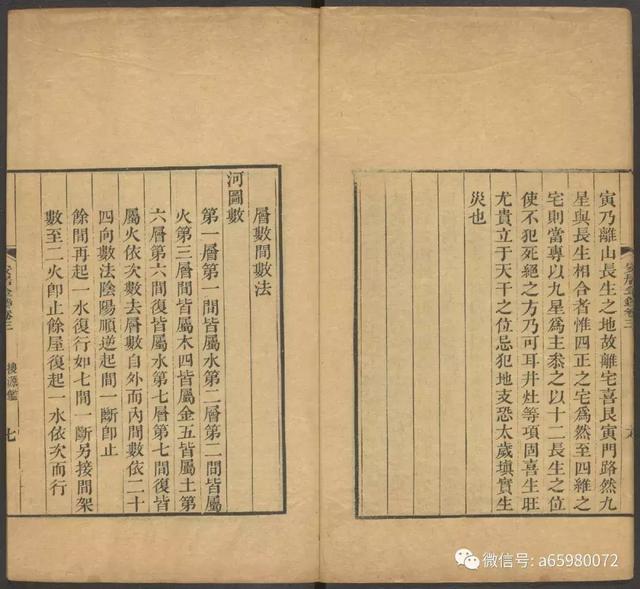 寅乃離山長生之地故離宅喜艮寅門路然九
星與長生相合者惟四正之宅爲然至四維之
宅則當專以九星爲主叅之以十二長生之位
使不犯死絕之方乃可耳井灶等項固喜生旺
尤貴立于天干之位忌犯地支恐太歲塡實生
災也
層數間數法
河圖數
第一層第一間皆屬水第二層第二間皆屬
火第三層間皆屬木四皆屬金五皆屬土第
六層第六間復皆屬水第七層第七間復皆
屬火依次數去層數自外而內間數依二十
四向數法陰陽順逆起間一斷卽止
餘間再起一水復行如七間一斷另接間架
數至二火卽止餘屋復起一水依次而行
七
微信号: a65980072